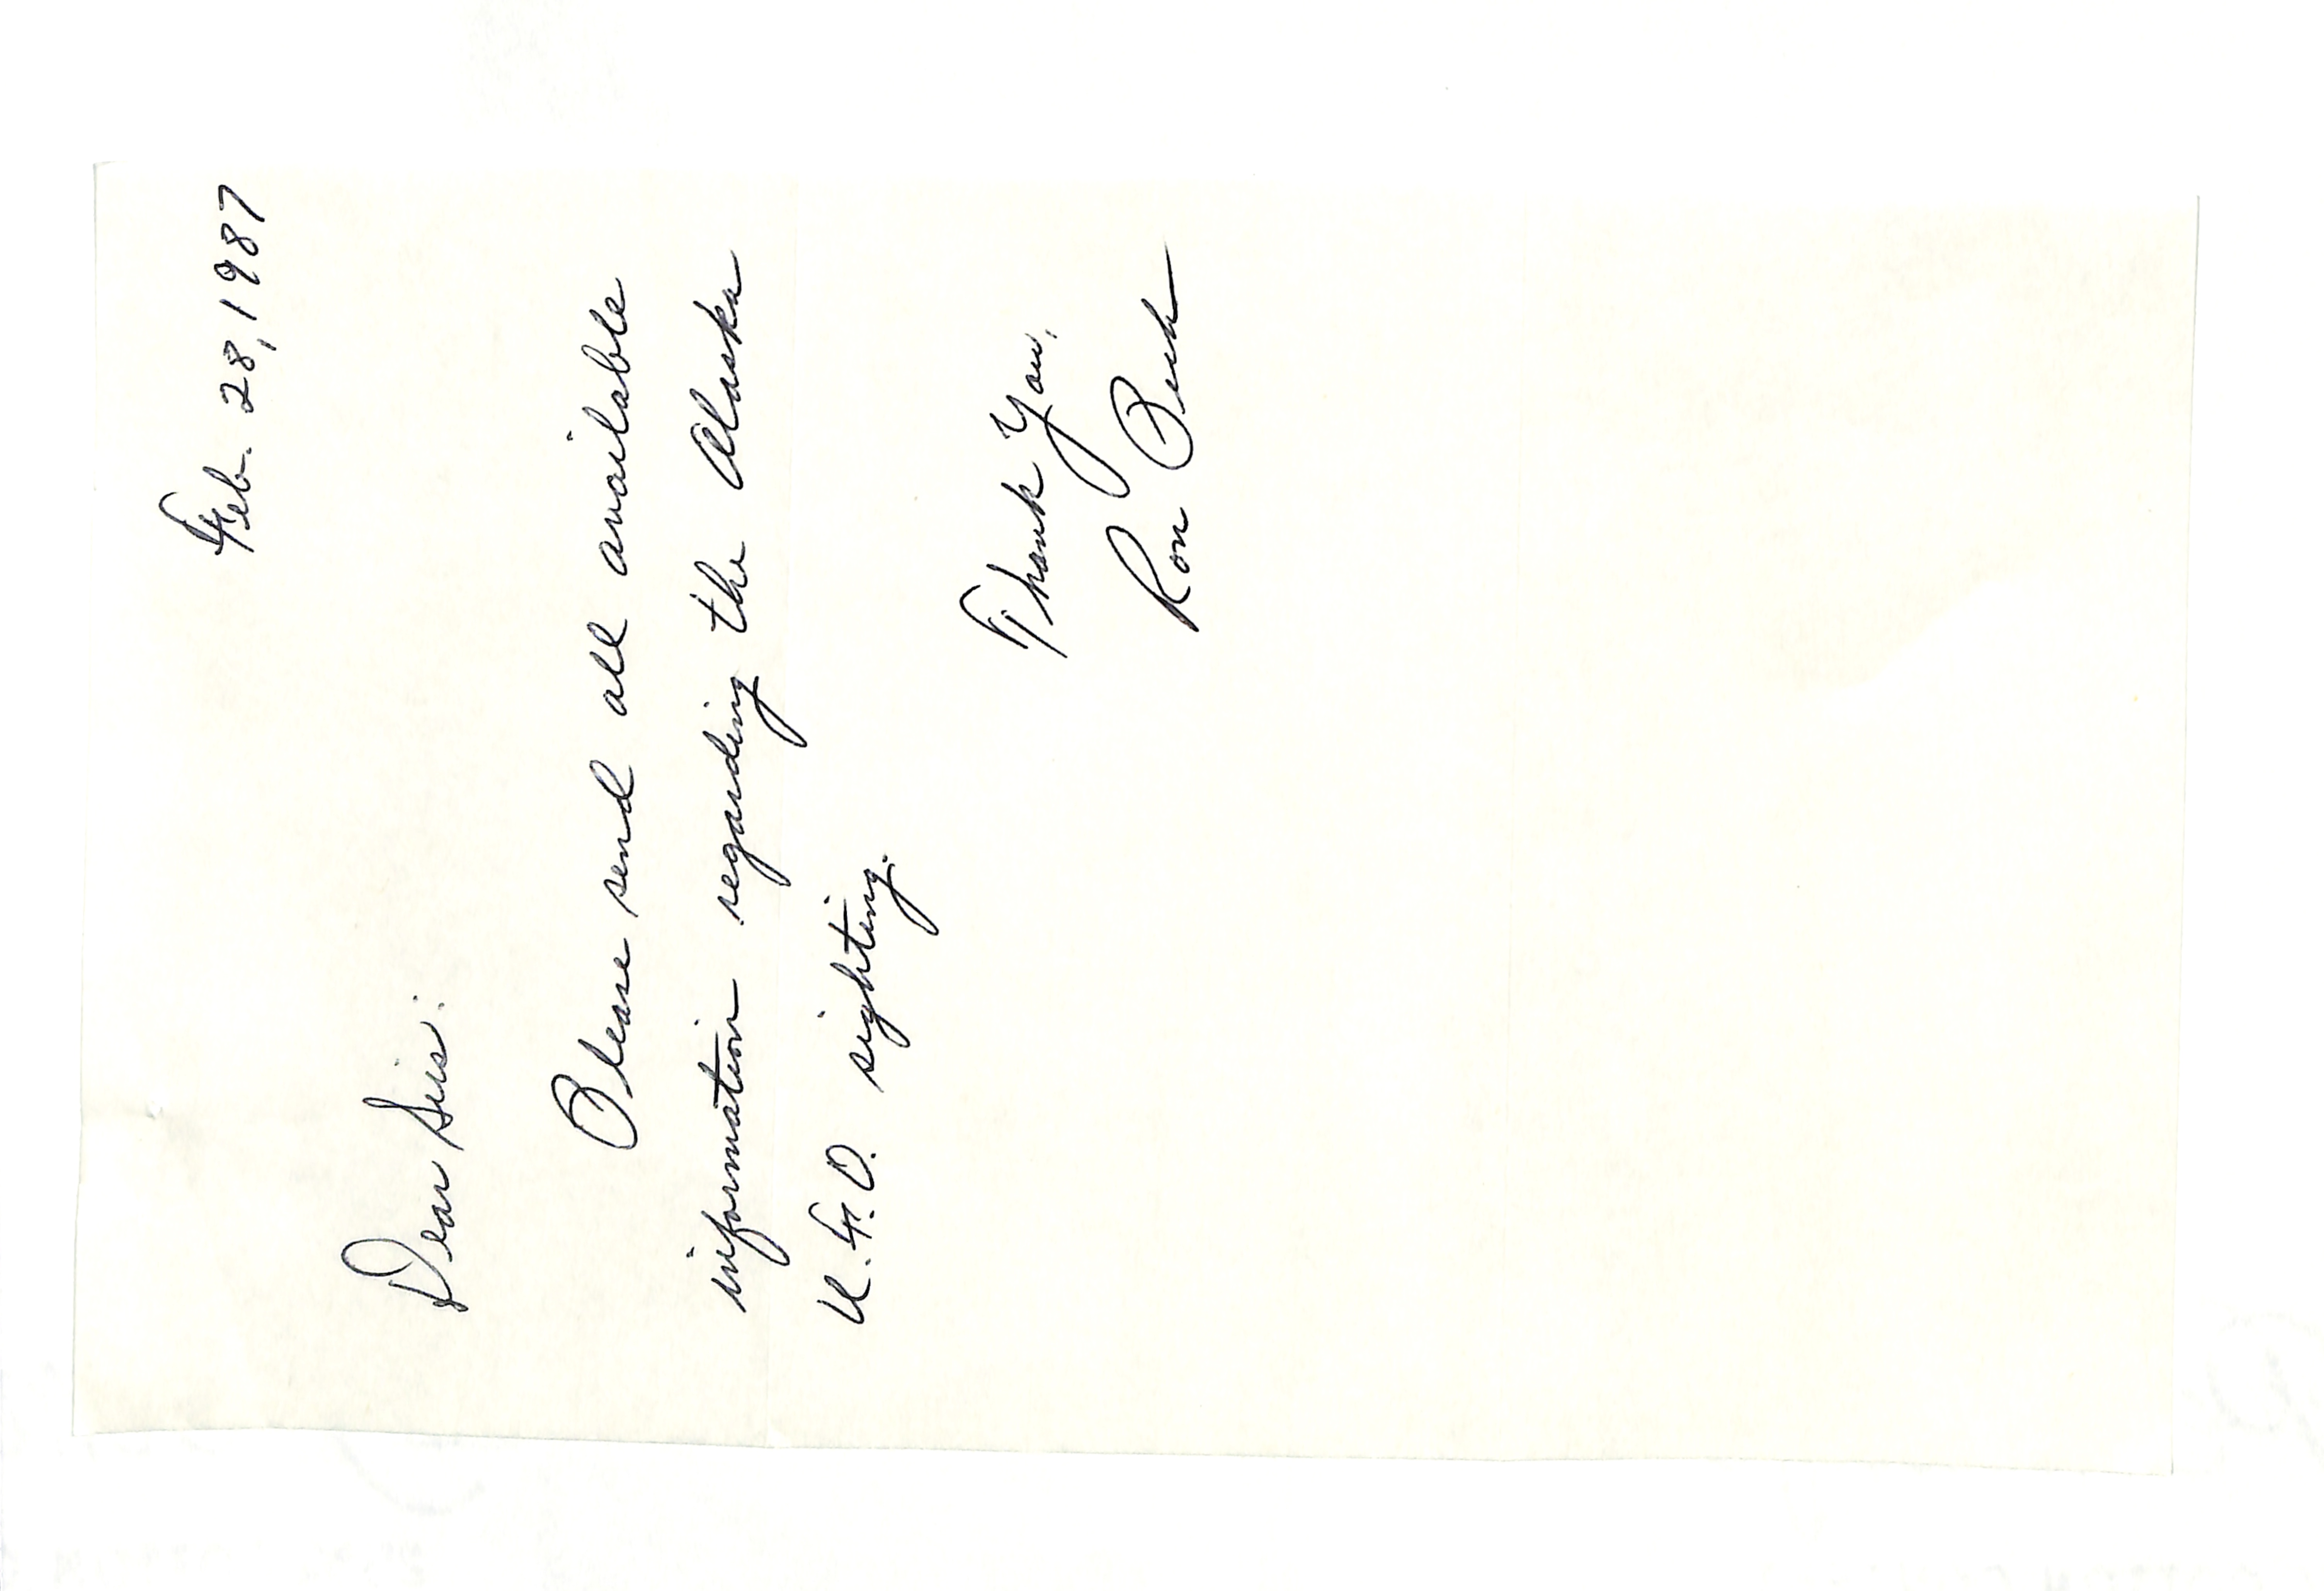 Feb. 28, 1987
Dear Sirs:
Please send all available
information regarding the Alaska
U.F.O. sighting.
Thank You,
Ron